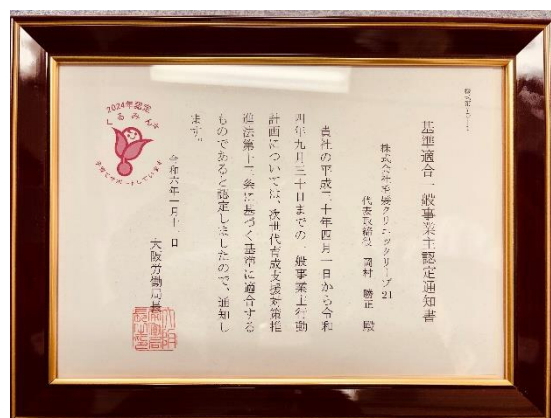 基準適合一般事業主認定通知書
株式会社毛髪クリニックリーブ21
代表取締役 岡村 勝正 殿
貴社の平成三十年四月一日から令和
四年九月三十日までの一般事業主行動
計画については、次世代育成支援対策推
進法第十三条に基づく基準に適合する
ものであると認定しましたので、通知し
ます。
令和六年一月十一日
大阪労働局長
2024年認定
くるみん
子育てサポートしています